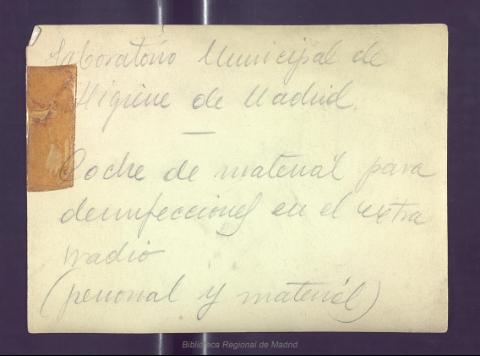 Laboratorio Municipal de
Higiene de Madrid.
Coche de material para
desinfecciones en el extra
rradio
(personal y material)
Biblioteca Regional de Madrid